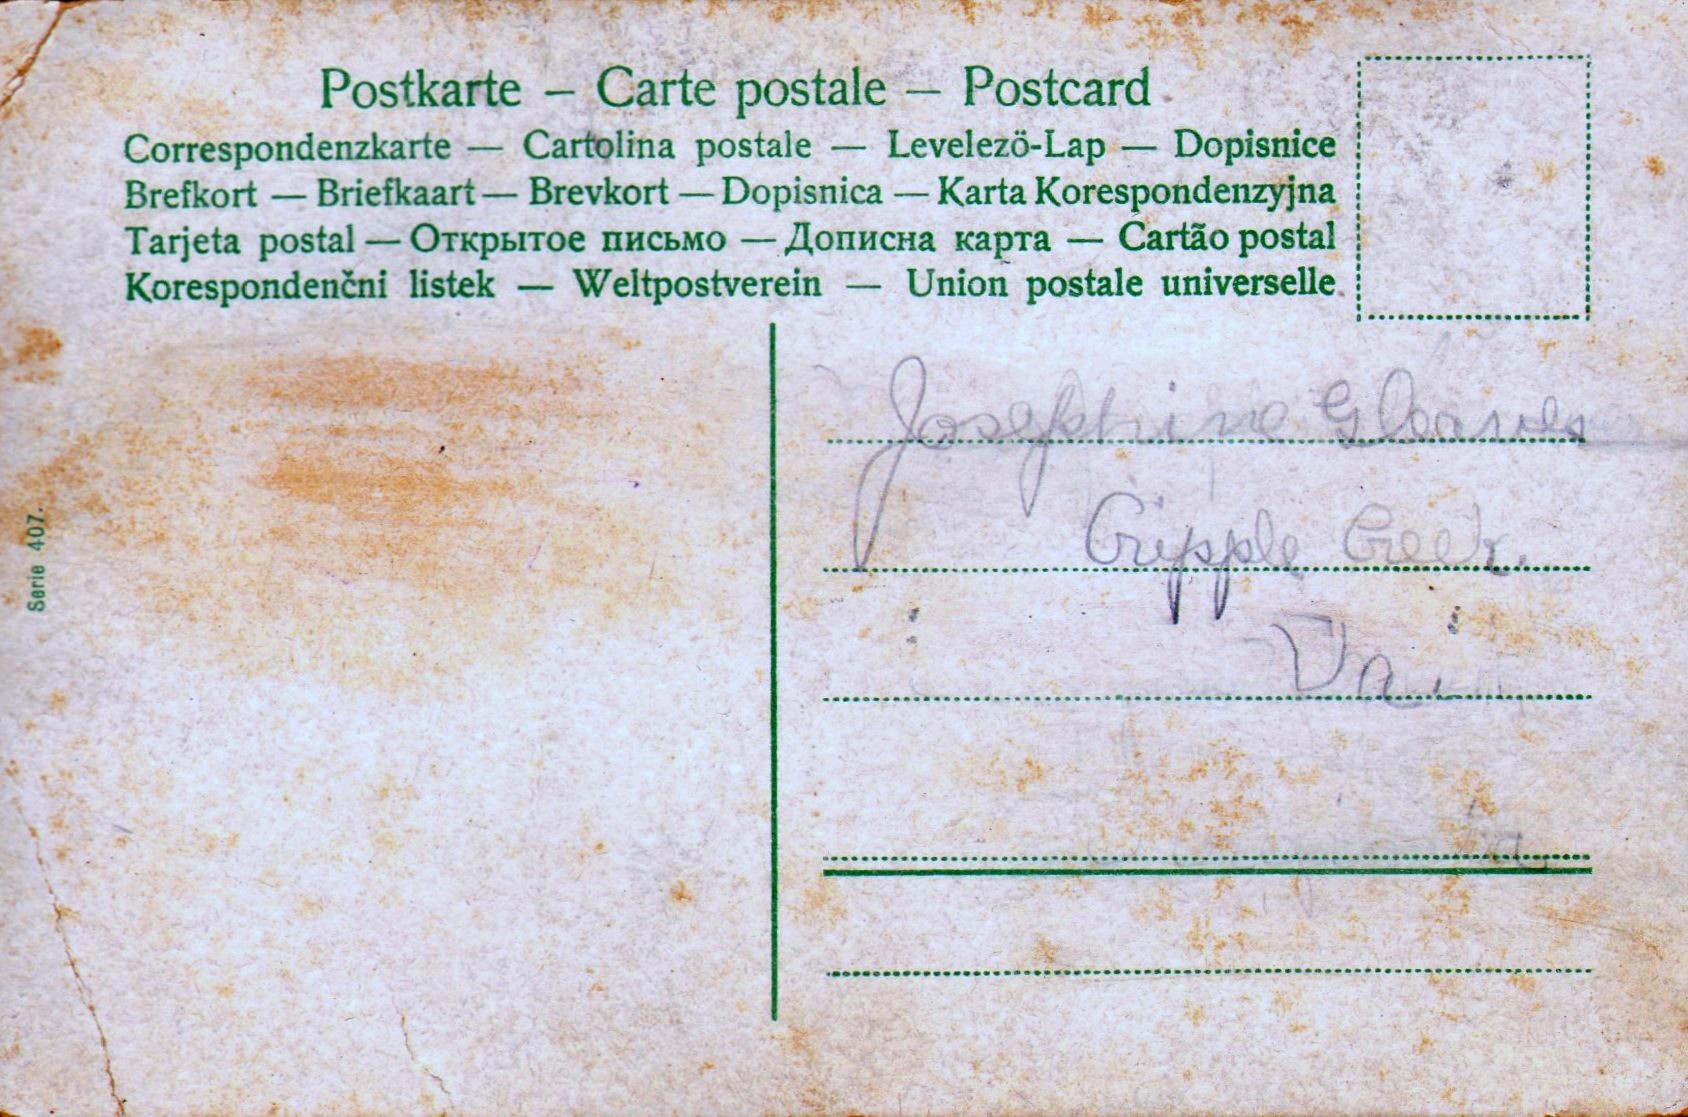 Postkarte – Carte postale – Postcard
Correspondenzkarte — Cartolina postale — Levelezö-Lap — Dopisnice
Brefkort — Briefkaart — Brevkort — Dopisnica — Karta Korespondenzyjna
Tarjeta postal — Открытое письмо — Дописна карта — Cartão postal
Korespondenčni listek — Weltpostverein — Union postale universelle.
Josephine
Cripple Creek.
Va.
Serie 407.